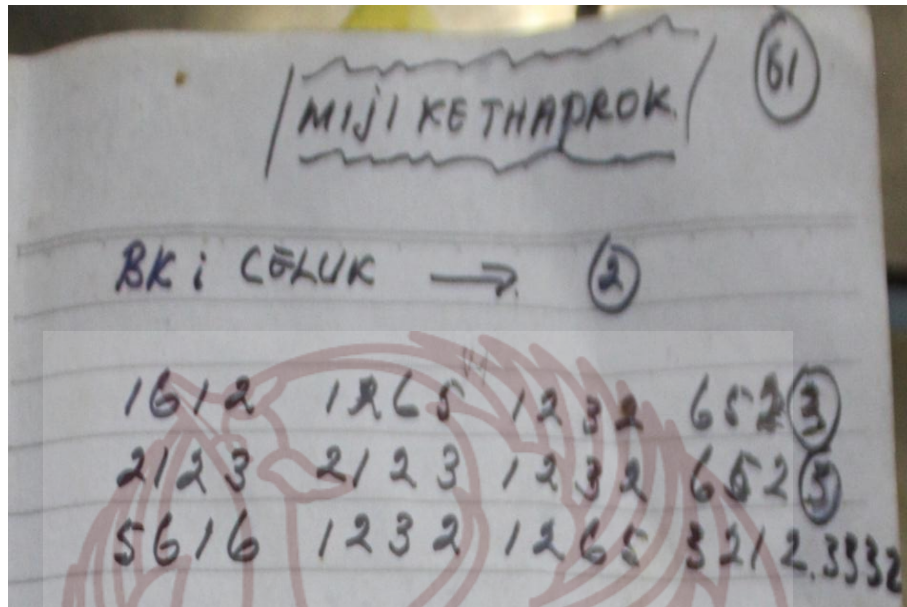 61
MIJI KETHAPROK
BK : CELUK → 2
1612 1265 1232 652 3
2123 2123 1232 652 3
5616 1232 1265 3212.3332